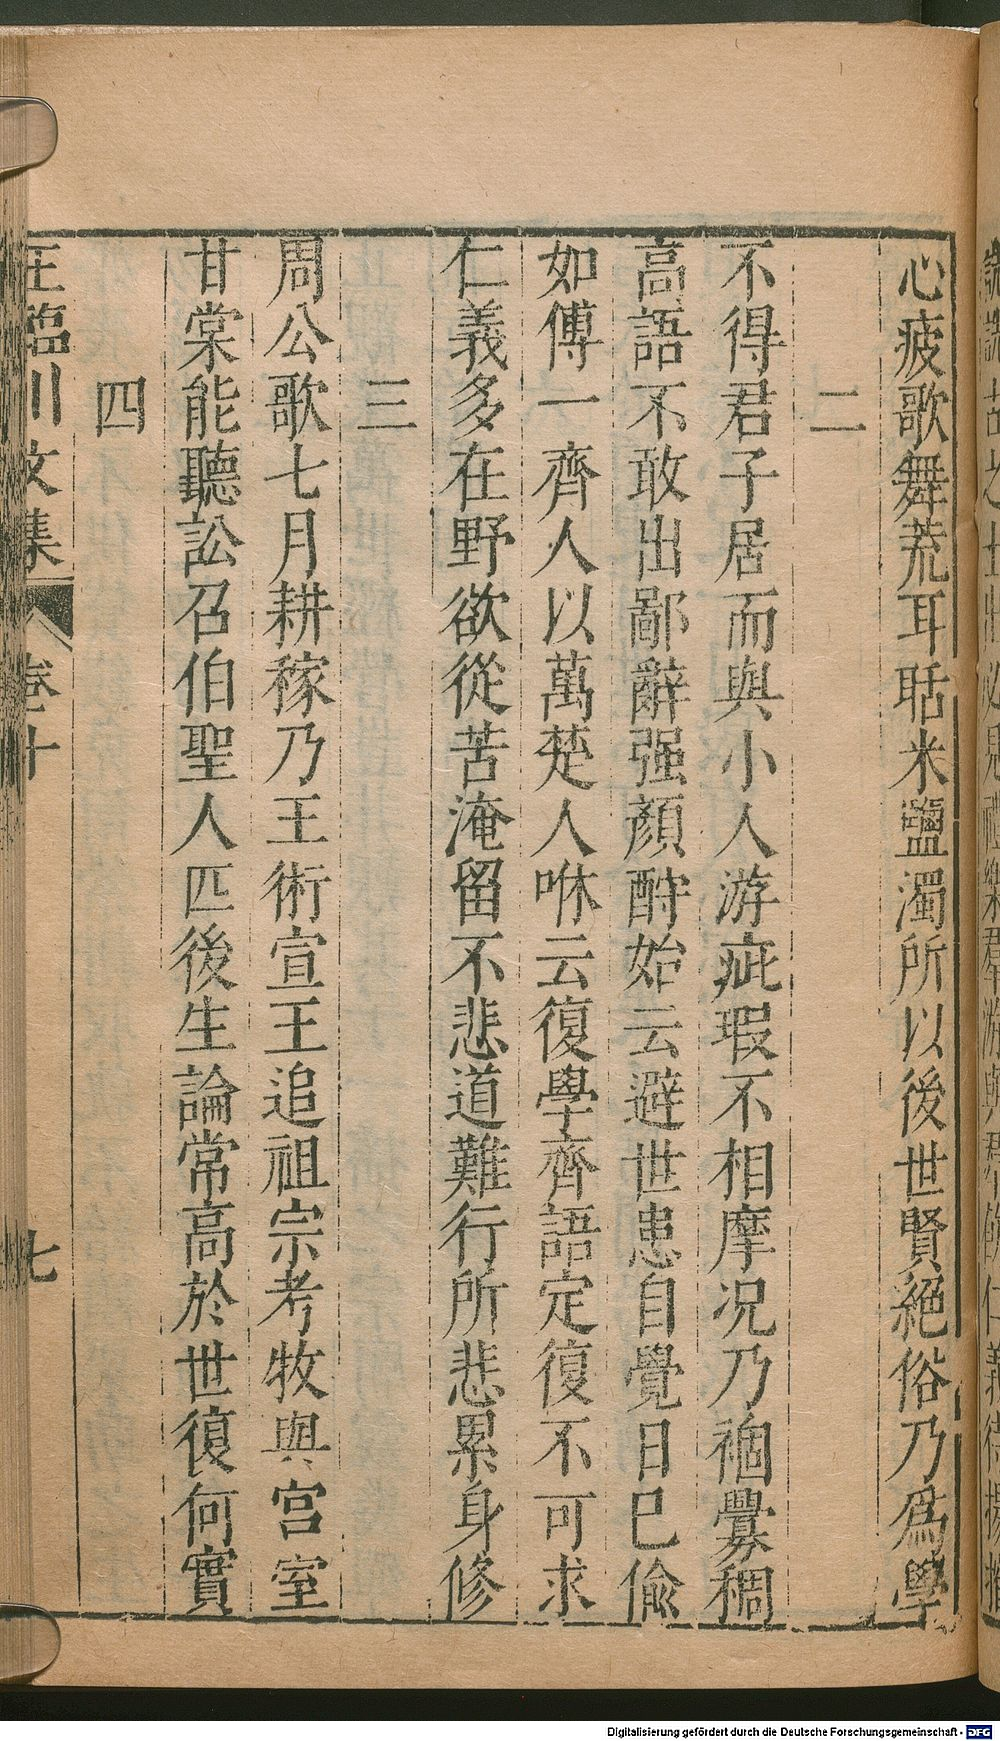 心疲歌舞荒耳聒米鹽濁所以後世賢絕俗乃爲學
二
不得君子居而與小人游疵瑕不相摩况乃禍釁稠
高語不敢出鄙辭强顏酧始云避世患自覺日已偷
如傅一齊人以萬楚人咻云復學齊語定復不可求
仁義多在野欲從苦淹留不悲道難行所悲累身修
三
周公歌七月耕稼乃王術宣王追祖宗考牧與宮室
甘棠能聽訟召伯聖人匹後生論常高於世復何實
四
王臨川文集 卷十 七
Digitalisierung gefördert durch die Deutsche Forschungsgemeinschaft - DFG